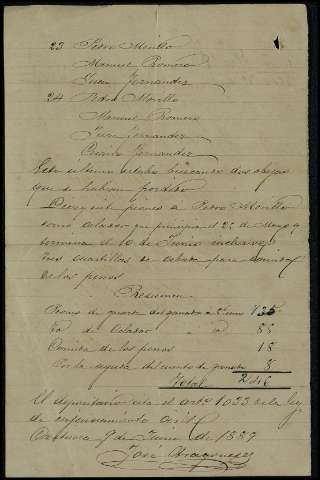 23 Pedro Morillo
Manuel Romero
Juan Fernandez
24 Pedro Morillo
Manuel Romero
Juan Fernandez
Fernandez
Este ultimo estubo buscando dos obejas
que se habian perdido
Diez y seis piones a Pedro Morillo
como celador que principia el 26 de Mayo y
termina el 10 de Junio inclusive
Tres cuartillas de cebada para comida
de los peones
Resumen
de guarda del ganado a 135
de celador 88
Comida de los peones 18
Por la ayuda del 8
Total 246
El depositario vea el artº 1033 de la ley
de enjuiciamiento civil
9 de Junio de 1887
José